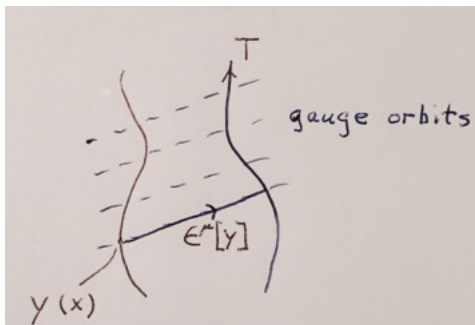 T
gauge orbits
ϵ^μ[y]
y(x)